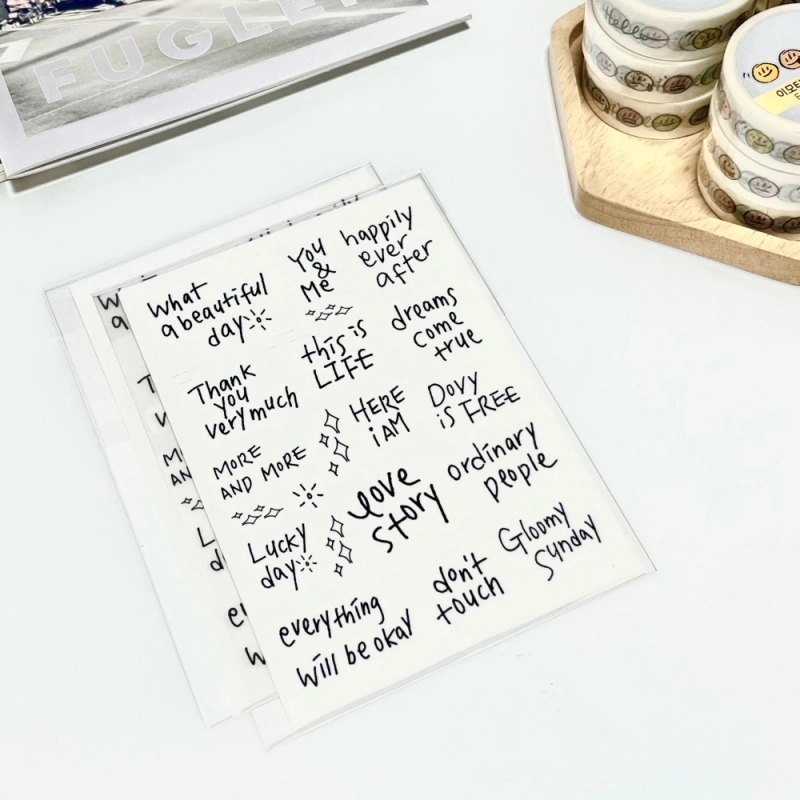 FUGLE
Hello
이모티
What
a beautiful
day
You
&
Me
happily
ever
after
this is
LIFE
dreams
come
true
Thank
you
very much
HERE
i AM
DOVY
iS FREE
MORE
AND MORE
love
story
ordinary
people
Lucky
day
Gloomy
Sunday
don't
touch
everything
will be okay